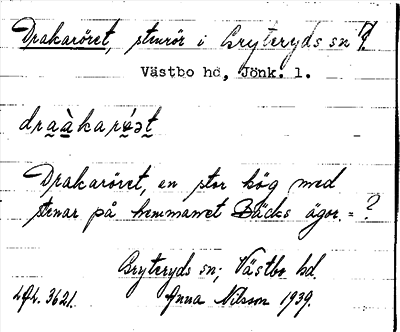 Drakaröret, stenrör i Bryteryds sn?
Västbo hd, Jönk. l.
draàkarǿət
Drakaröret, en stor hög med
stenar på hemmanet Bäcks ägor. = ?
Bryteryds sn; Västbo hd.
3621. Anna Nilsson 1939.